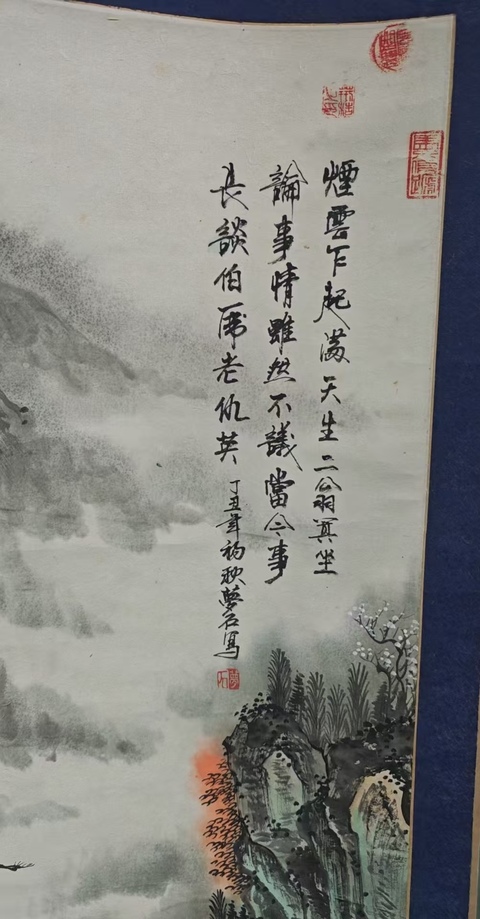 煙雲乍起滿天生二翁冥坐
論事情雖然不議當今事
長談伯虎老仇英
丁丑年初秋夢石寫